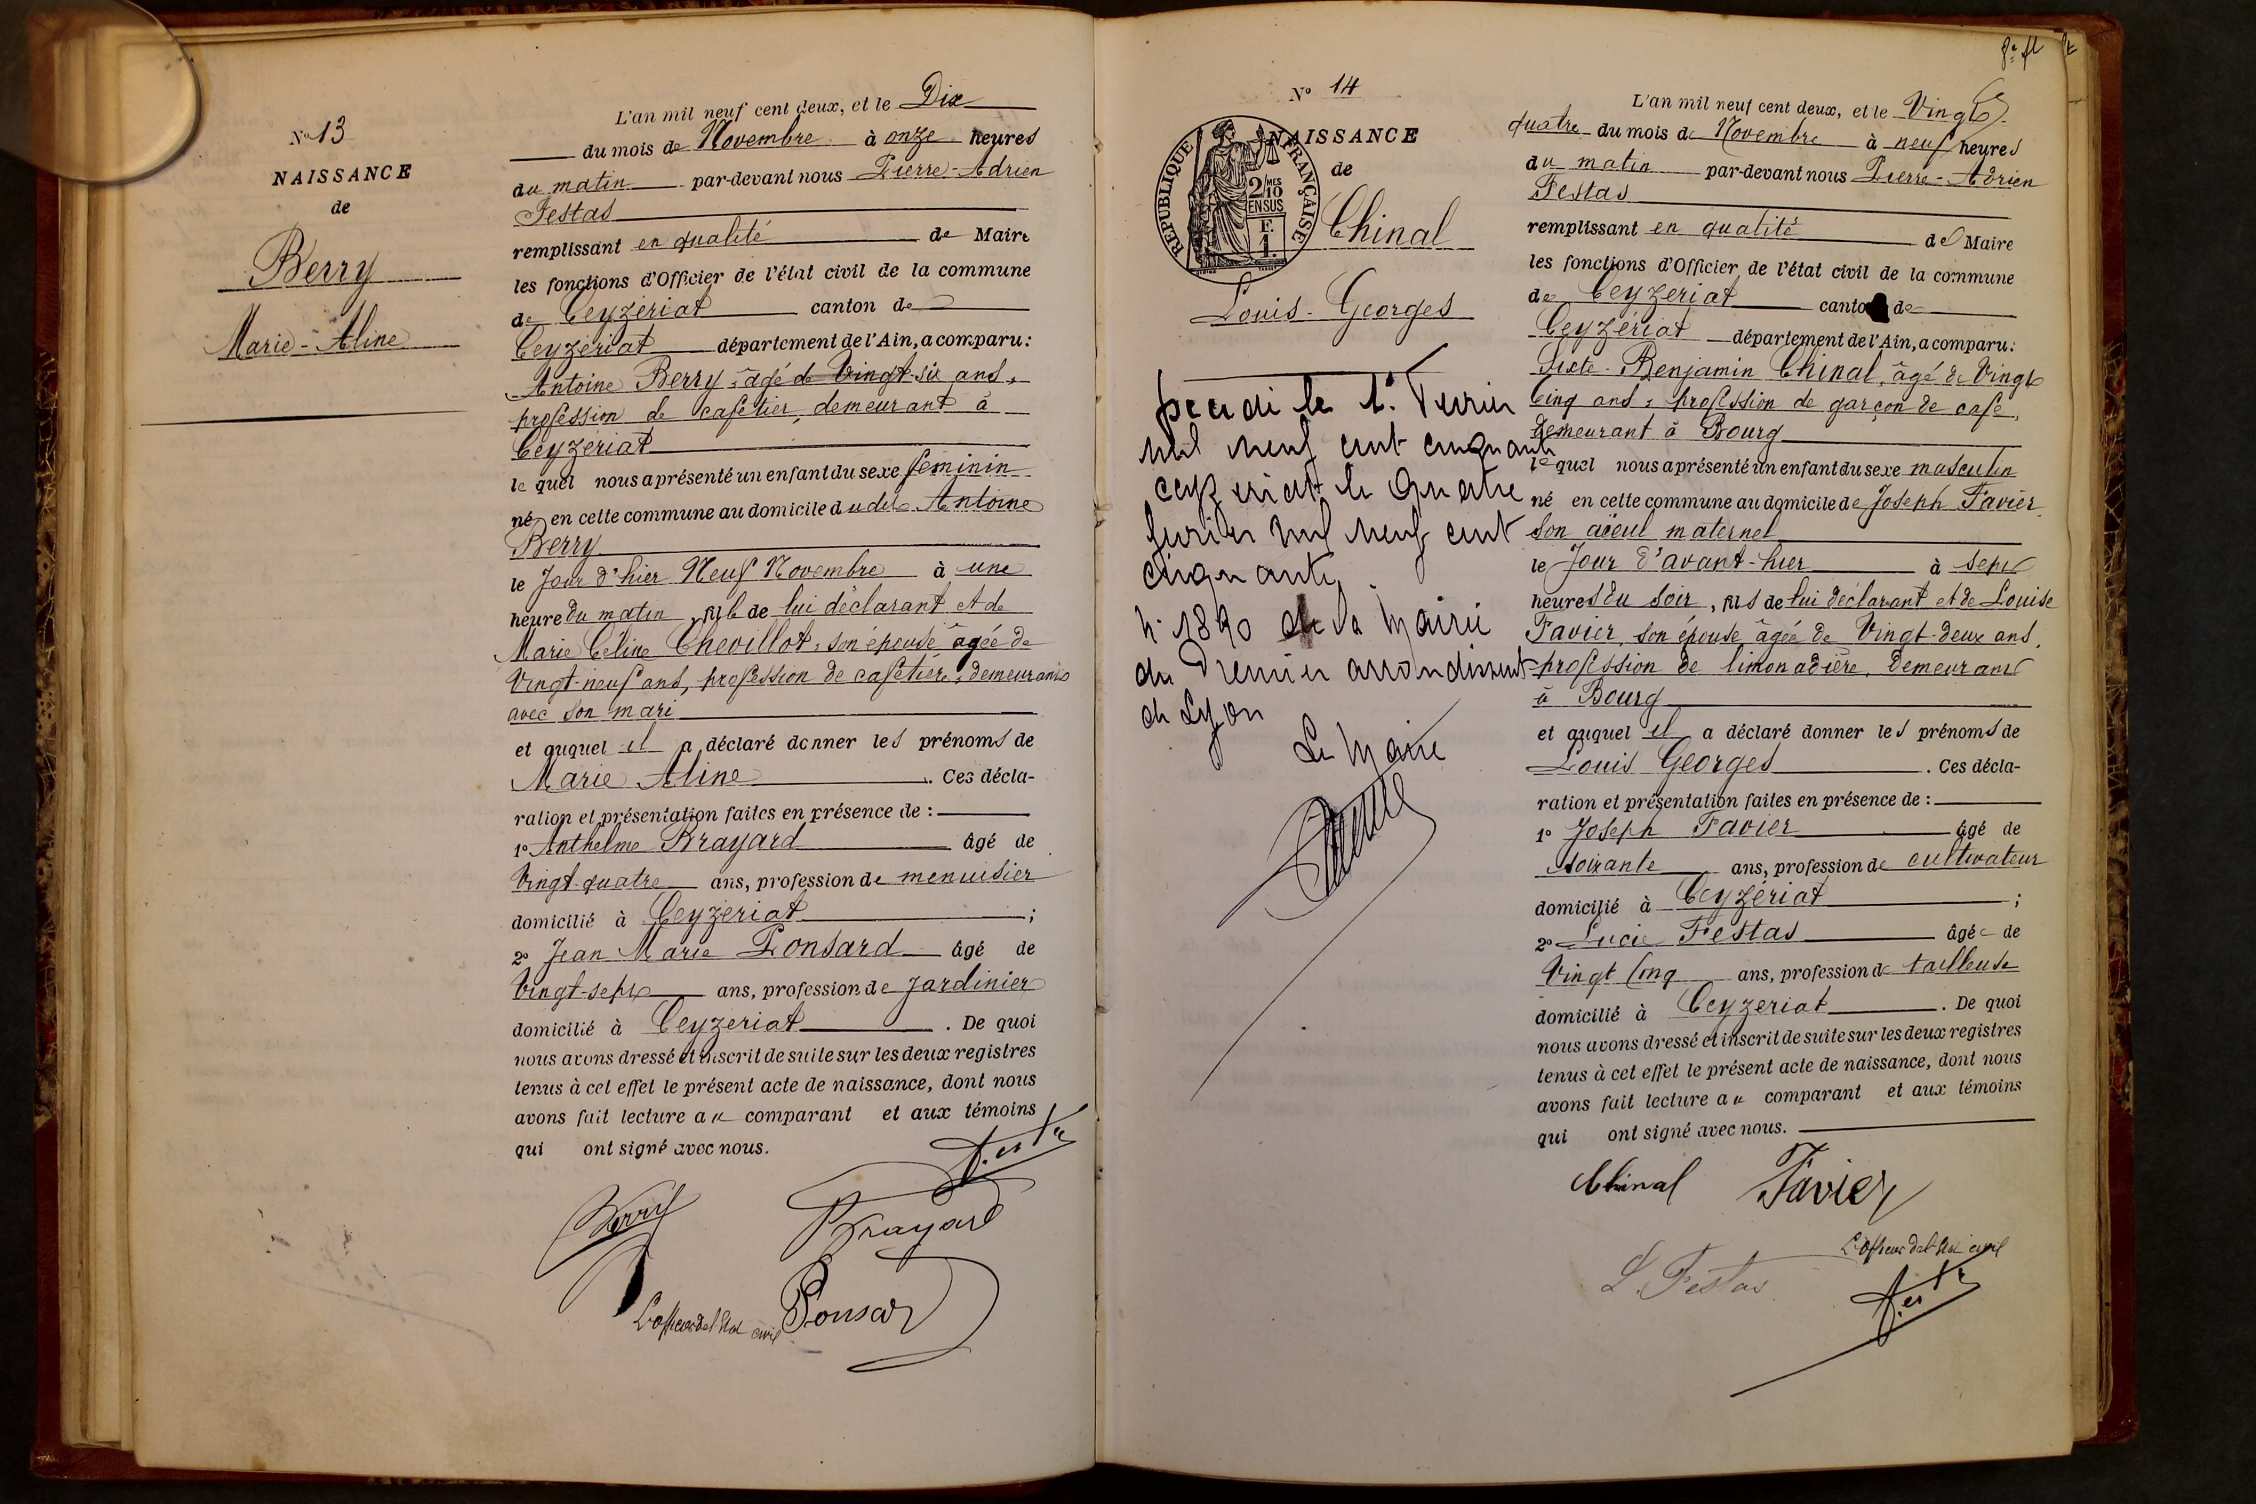 Nº 13
NAISSANCE
de
Berry
Marie-Aline
L'an mil neuf cent deux, et le Dix
du mois de Novembre à onze heures
du matin par-devant nous Pierre-Adrien
Festas
remplissant en qualité de Maire
les fonctions d'Officier de l'état civil de la commune
de Ceyzériat canton de
Ceyzériat département de l'Ain, a comparu:
Antoine Berry, âgé de Vingt-six ans,
profession de cafetier, demeurant à
Ceyzériat
le quel nous a présenté un enfant du sexe feminin
né en cette commune au domicile dudit Antoine
Berry
le Jour d'hier Neuf Novembre à une
heure du matin, fille de lui déclarant et de
Marie Céline Chevillot, son épouse âgée de
Vingt-neuf ans, profession de cafetière, demeurant
avec son mari
et auquel il a déclaré donner les prénoms de
Marie Aline. Ces décla-
ration et présentation faites en présence de :
1º Anthelme Brayard âgé de
Vingt-quatre ans, profession de menuisier
domicilié à Ceyzériat ;
2º Jean Marie Ponsard âgé de
Vingt-sept ans, profession de Jardinier
domicilié à Ceyzériat. De quoi
nous avons dressé et inscrit de suite sur les deux registres
tenus à cet effet le présent acte de naissance, dont nous
avons fait lecture au comparant et aux témoins
qui ont signé avec nous.
Berry
Brayard
L'officier de l'état civil
Ponsard
Nº 14
NAISSANCE
de
RÉPUBLIQUE FRANÇAISE
2/10 MES
EN SUS
F.
1.
Chinal
Louis-Georges
L'an mil neuf cent deux, et le Vingt-
quatre du mois de Novembre à neuf heures
du matin par-devant nous Pierre-Adrien
Festas
remplissant en qualité de Maire
les fonctions d'Officier de l'état civil de la commune
de Ceyzériat canton de
Ceyzériat département de l'Ain, a comparu:
Sixte-Benjamin Chinal, âgé de Vingt
Cinq ans, profession de garçon de café,
demeurant à Bourg
le quel nous a présenté un enfant du sexe masculin
né en cette commune au domicile de Joseph Favier
son aïeul maternel
le Jour d'avant-hier à sept
heures du soir, fils de lui déclarant et de Louise
Favier, son épouse âgée de Vingt-deux ans,
profession de limonadière, demeurant
à Bourg
et auquel il a déclaré donner les prénoms de
Louis Georges. Ces décla-
ration et présentation faites en présence de :
1º Joseph Favier âgé de
soixante ans, profession de cultivateur
domicilié à Ceyzériat ;
2º Lucie Festas âgée de
Vingt Cinq ans, profession de tailleuse
domicilié à Ceyzériat. De quoi
nous avons dressé et inscrit de suite sur les deux registres
tenus à cet effet le présent acte de naissance, dont nous
avons fait lecture au comparant et aux témoins
qui ont signé avec nous.
Chinal Favier
L'officier de l'état civil
L. Festas
le 1er Fevrier
mil neuf cent cinquante
ceyzeriat le Quatre
fevrier mil neuf cent
cinquante
de la Mairie
du Premier arrondissement
de Lyon
Le Maire